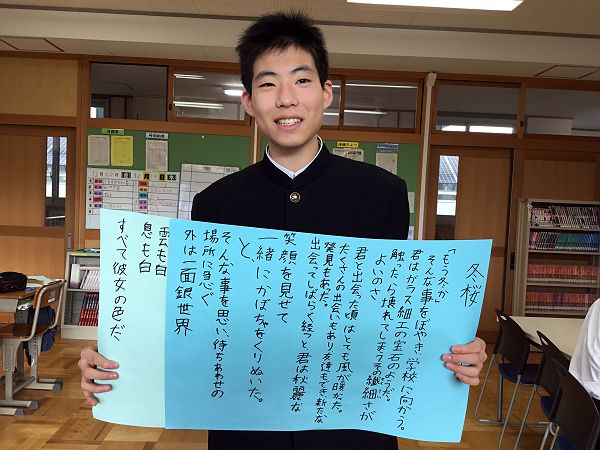 冬桜
「もう冬か」
そんな事をぼやき、学校に向かう。
君はガラス細工の宝石のようだ。
触ったら壊れてしまうその繊細さが
よいのさ
君と出会った頃はとても風が暖かだ。
たくさんの出会いもあり友達もでき新たな
発見もあった。
出会ってしばらく経つと君は秋麗な
笑顔を見せて
一緒にかぼちゃをくりぬいた。
と、
そんな事を思い待ちあわせの
場所に急ぐ
外は一面銀世界
雲も白
息も白
すべて彼女の色だ